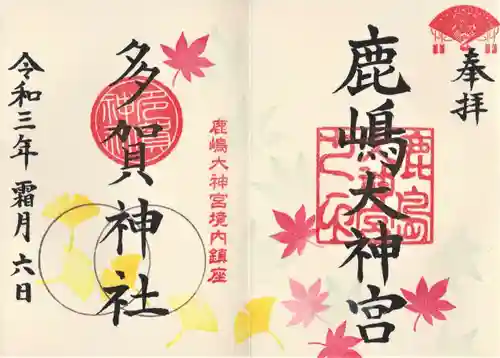 奉拝
鹿嶋大神宮
鹿嶋大神宮境内鎮座
多賀神社
令和三年 霜月 六日